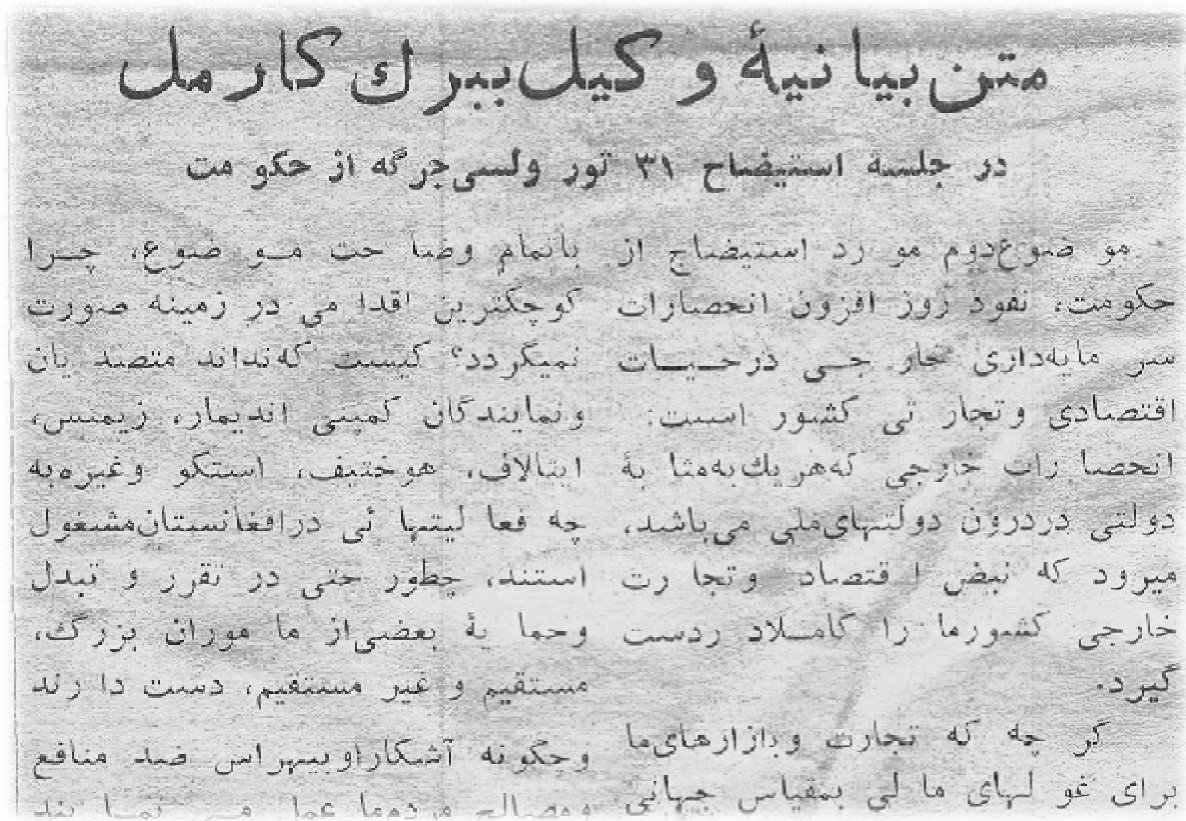 متن بیانیهٔ وکیل ببرك کارمل
در جلسهٔ استیضاح ۳۱ ثور ولسی جرگه از حکومت
موضوع دوم مورد استیضاح از
حکومت، نفوذ روز افزون انحصارات
سرمایه‌داری خارجی درحیات
اقتصادی وتجارتی کشور است.
انحصارات خارجی که هریك به مثابهٔ
دولتی دردرون دولتهای ملی می‌باشد،
میرود که نبض اقتصاد وتجارت
خارجی کشورما را کاملاد ردست
گیرد.
گر چه که تجارت وبازارهای‌ما
برای غولهای مالی بمقیاس جهانی
باتمام وضاحت موضوع، چرا
کوچکترین اقدامی در زمینه صورت
نمیگردد؟ کیست که نداند متصدیان
ونمایندگان کمپنی اندیمار، زیمنس،
ایتالاف، هوختیف، استکو وغیره به
چه فعالیتهائی درافغانستان مشغول
استند، چطور حتی در تقرر و تبدل
وحمایهٔ بعضی از ماموران بزرگ،
مستقیم و غیر مستقیم، دست دارند
وچگونه آشکارا وبیهراس ضد منافع
ومصالح مردم‌ما عمل می نمایند